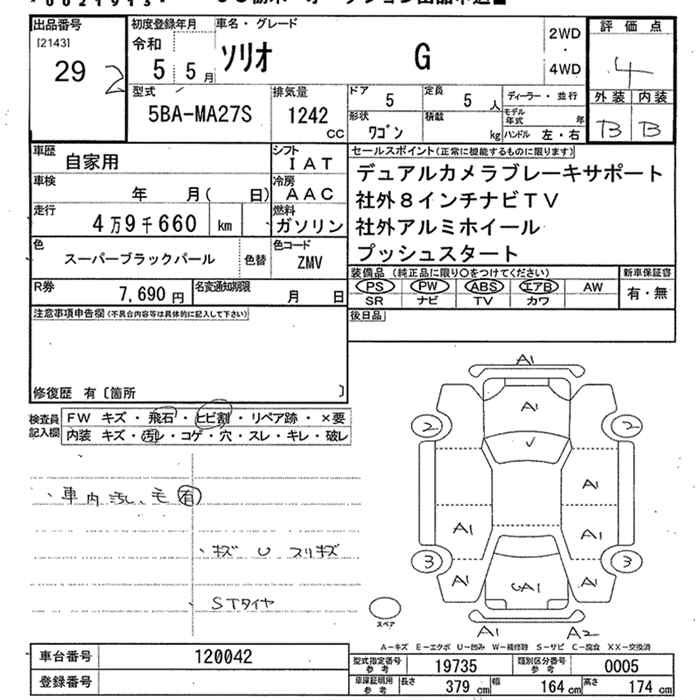 出品番号 初度登録年月 車名・グレード 2WD 評価点
[2143] 令和 ・
29 2 5 5月 ソリオ G 4WD 4
型式 排気量 ドア 5 定員 5人 ディーラー・並行 外装 内装
5BA-MA27S 1242 cc 形状 ワゴン 積載 kg モデル年式 年 B B
ハンドル 左・右
車歴 自家用 シフト IAT セールスポイント(正常に機能するものに限ります)
車検 年 月( 日) 冷房 AAC デュアルカメラブレーキサポート
走行 4万9千660 km 燃料 ガソリン 社外8インチナビTV
社外アルミホイール
色 スーパーブラックパール 色替 色コード ZMV プッシュスタート
装備品(純正品に限り○をつけてください) 新車保証書
R券 7,690円 名変通知期限 月 日 PS PW ABS エアB AW 有・無
SR ナビ TV カワ
注意事項申告欄(不具合内容等は具体的に記入して下さい) 後日品
修復歴 有〔箇所 〕
検査員記入欄 FW キズ・飛石・ヒビ割・リペア跡・×要
内装 キズ・汚レ・コゲ・穴・スレ・キレ・破レ
・車内汚レ、毛有
・キズ U スリキズ
STタイヤ
A1
A1
2 2
U
A1
A1 A1
3 3
A1 A1
A1
スペア
A1 A2
A-キズ E-エクボ U-凹み W-補修跡 S-サビ C-腐食 XX-交換済
車台番号 120042 型式指定番号参考 19735 類別区分番号参考 0005
登録番号 車庫証明用参考 長さ 379cm 幅 164cm 高さ 174cm